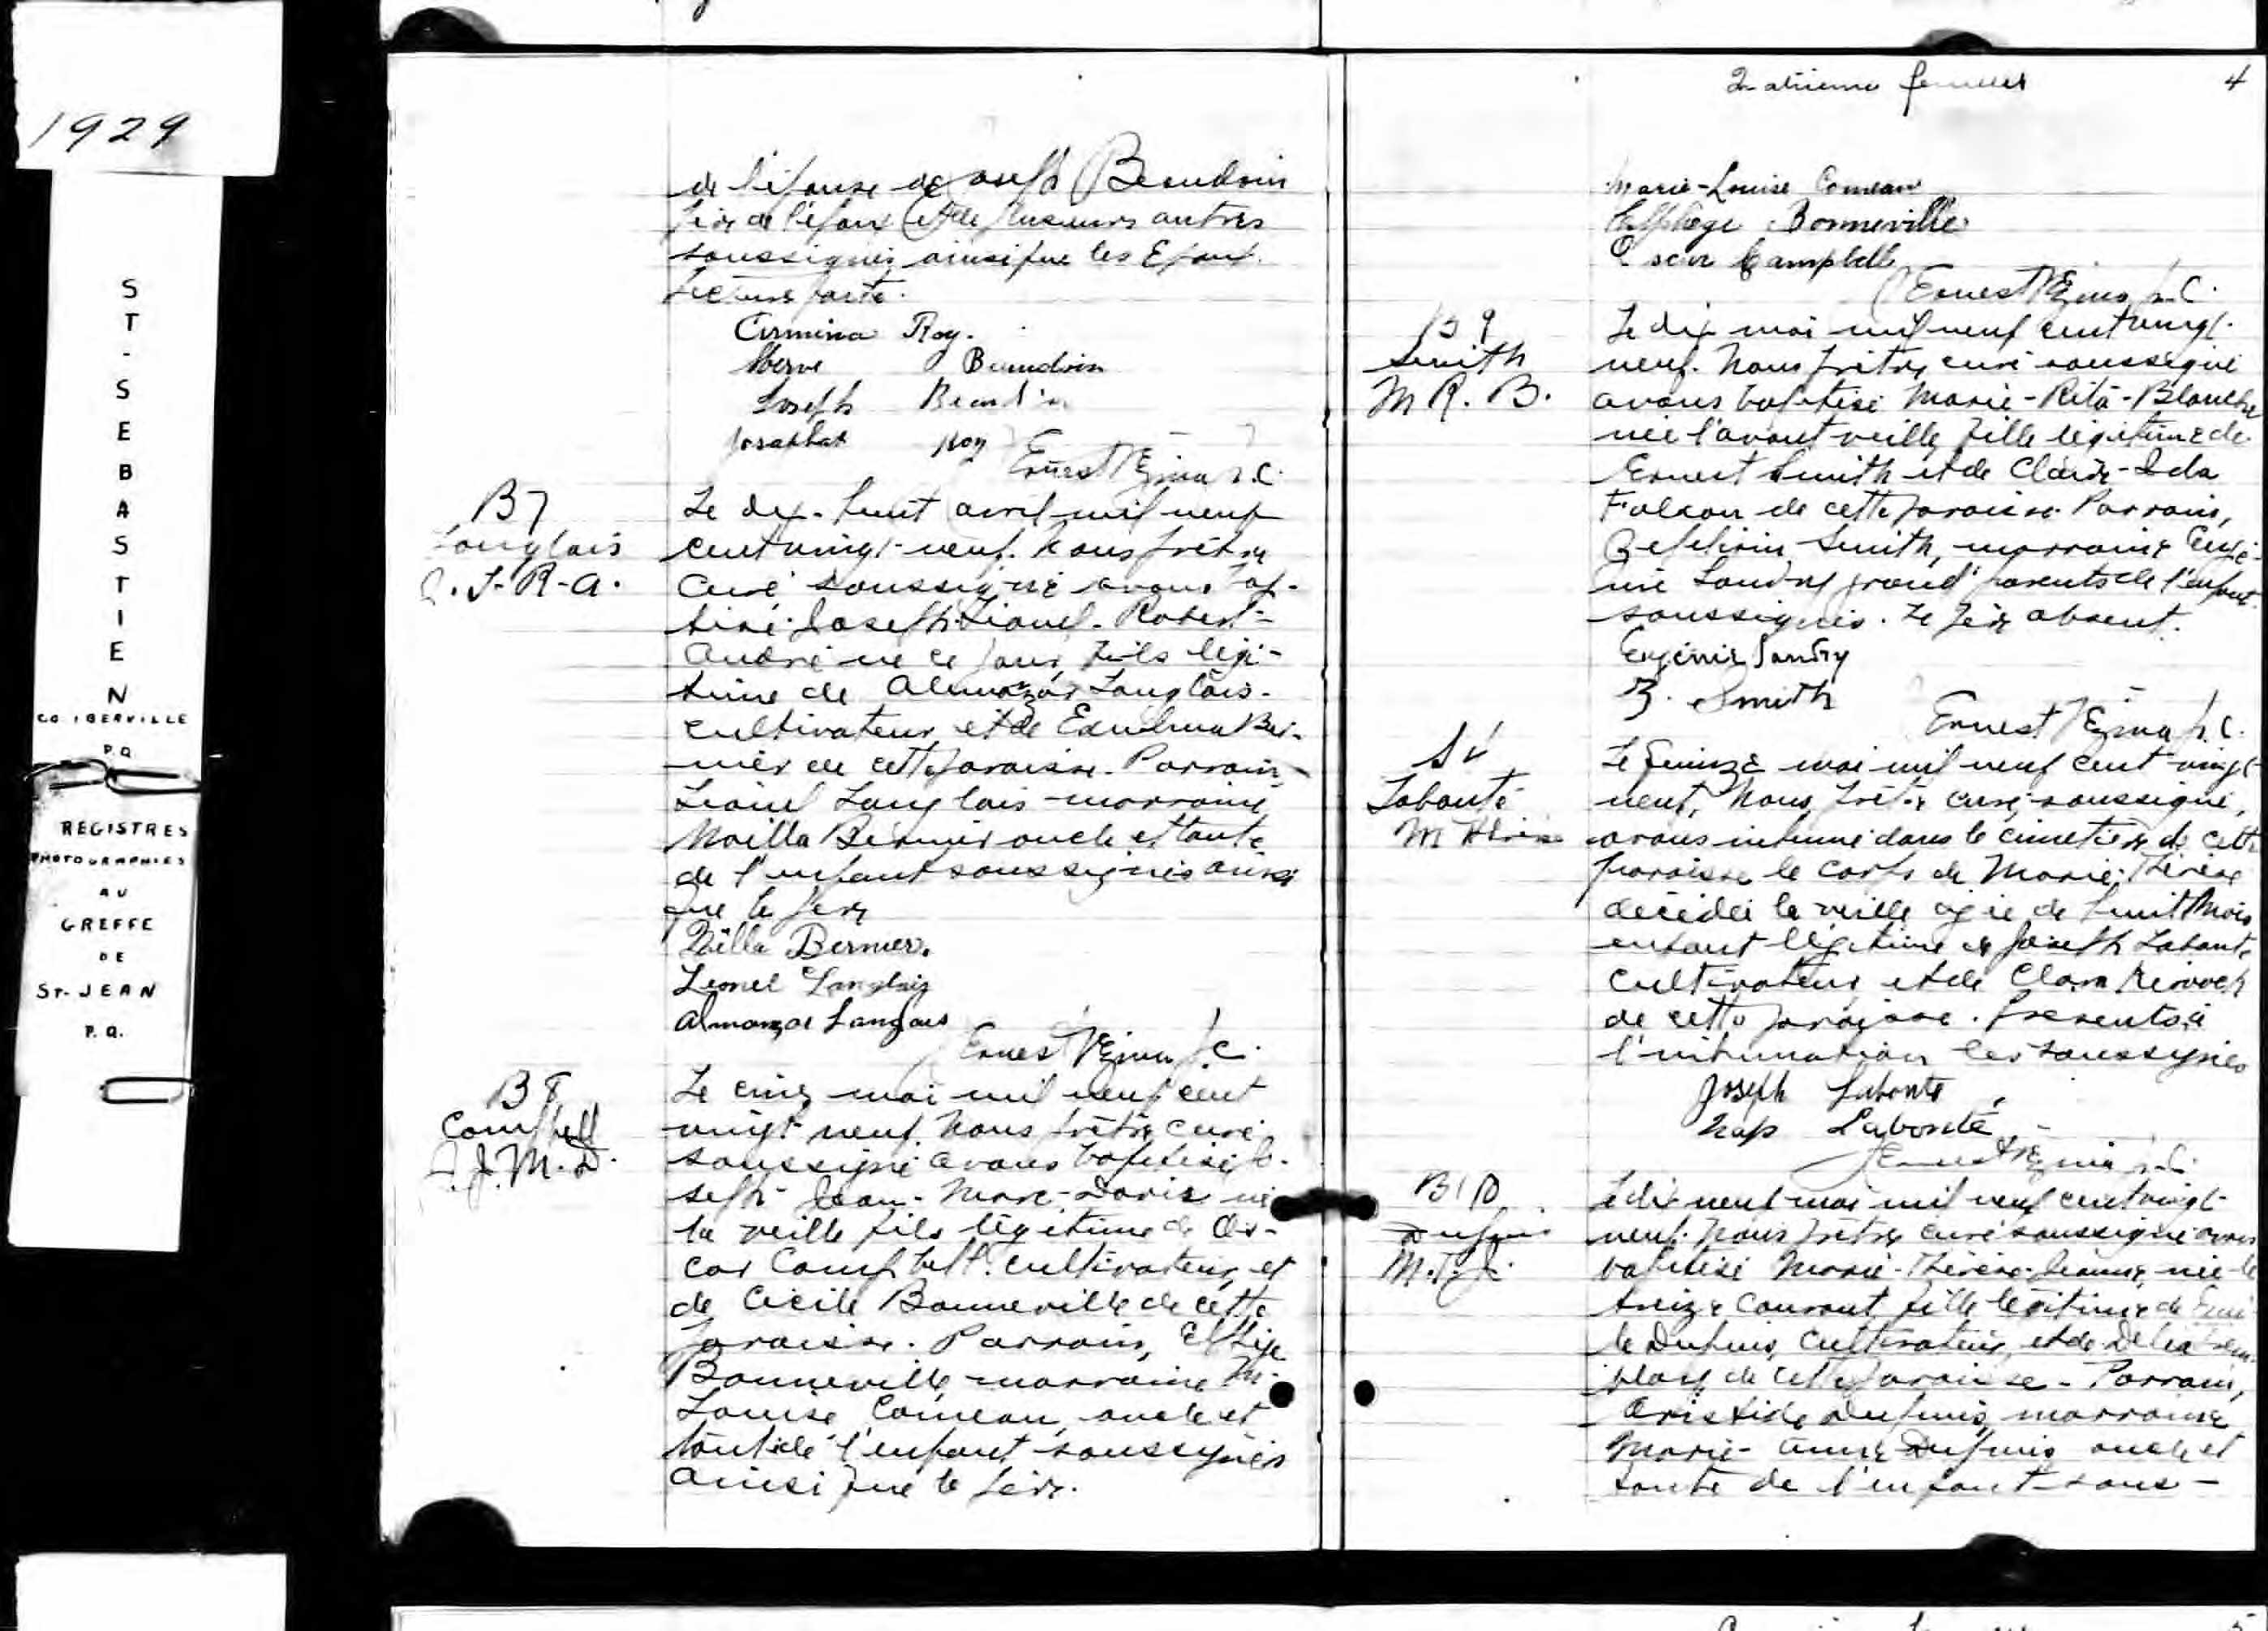 1929
ST-SEBASTIEN
CO. IBERVILLE
P.Q.
REGISTRES
PHOTOGRAPHIES
AU
GREFFE
DE
ST-JEAN
P.Q.
de l'épouse de Joseph Beaudoin
père de l'époux et de plusieurs autres
soussignés ainsi que les Epoux.
Lecture faite.
Armina Roy.
Beaudoin
Joseph Beaudin
Josaphat Roy
Ernest Vézina p.C.
B7
Langlais
J. L-R-A.
Le dix-huit avril mil neuf
cent vingt-neuf. Nous prêtre
curé soussigné avons bap-
tisé Joseph-Lionel-Robert-
André né ce jour, fils légi-
time de Almozar Langlais
cultivateur, et de Exulma Ber-
nier de cette paroisse. Parrain
Lionel Langlais marraine
Noilla Bernier oncle et tante
de l'enfant soussignés ainsi
que le père
Noëlla Bernier.
Lionel Langlais
Almanzor Langlais
Ernest Vézina p.C.
B8
Campbell
J. J. M. D.
Le cinq mai mil neuf cent
vingt neuf. Nous prêtre curé
soussigné avons baptisé Jo-
seph-Jean-Marc-Doris né
la veille fils légitime de Os-
car Campbell cultivateur, et
de Cécile Bonneville de cette
paroisse. Parrain,
Bonneville, marraine M.
Louise Comeau, oncle et
tante de l'enfant soussignés
ainsi que le père.
Quatrième feuillet 4
Marie-Louise Comeau
Elphège Bonneville
Oscar Campbell
Ernest Vézina p.C.
B9
Smith
M R. B.
Le dix mai mil neuf cent vingt-
neuf. Nous prêtre curé soussigné
avons baptisé Marie-Rita-Blanche
née l'avant veille, fille légitime de
Ernest Smith et de Claire-Ida
Falcon de cette paroisse. Parrain,
Zéphirin Smith, marraine Eugé-
nie Landry grand'parents de l'enfant
soussignés. Le père absent.
Eugénie Landry
Z. Smith
Ernest Vézina p.C.
S
Labonté
M Thérèse
Le quinze mai mil neuf cent vingt-
neuf, Nous, prêtre curé, soussigné,
avons inhumé dans le cimetière de cette
paroisse le corps de Marie-Thérèse
décédée la veille agée de huit mois
enfant légitime de Joseph Labonté
cultivateur, et de Clara
de cette paroisse. Présents à
l'inhumation les soussignés
Joseph Labonté
Nap Labonté
Ernest Vézina p.C.
B10
Dupuis
M. T. J.
Le dix neuf mai mil neuf cent vingt-
neuf. Nous prêtre curé soussigné avons
baptisé Marie-Thérèse-Jeanne, née le
treize courant, fille légitime de Emi-
le Dupuis, cultivateur, et de Délia
de cette paroisse. Parrain,
Aristide Dupuis, marraine
Marie-Anne Dupuis oncle et
tante de l'enfant sous-
5